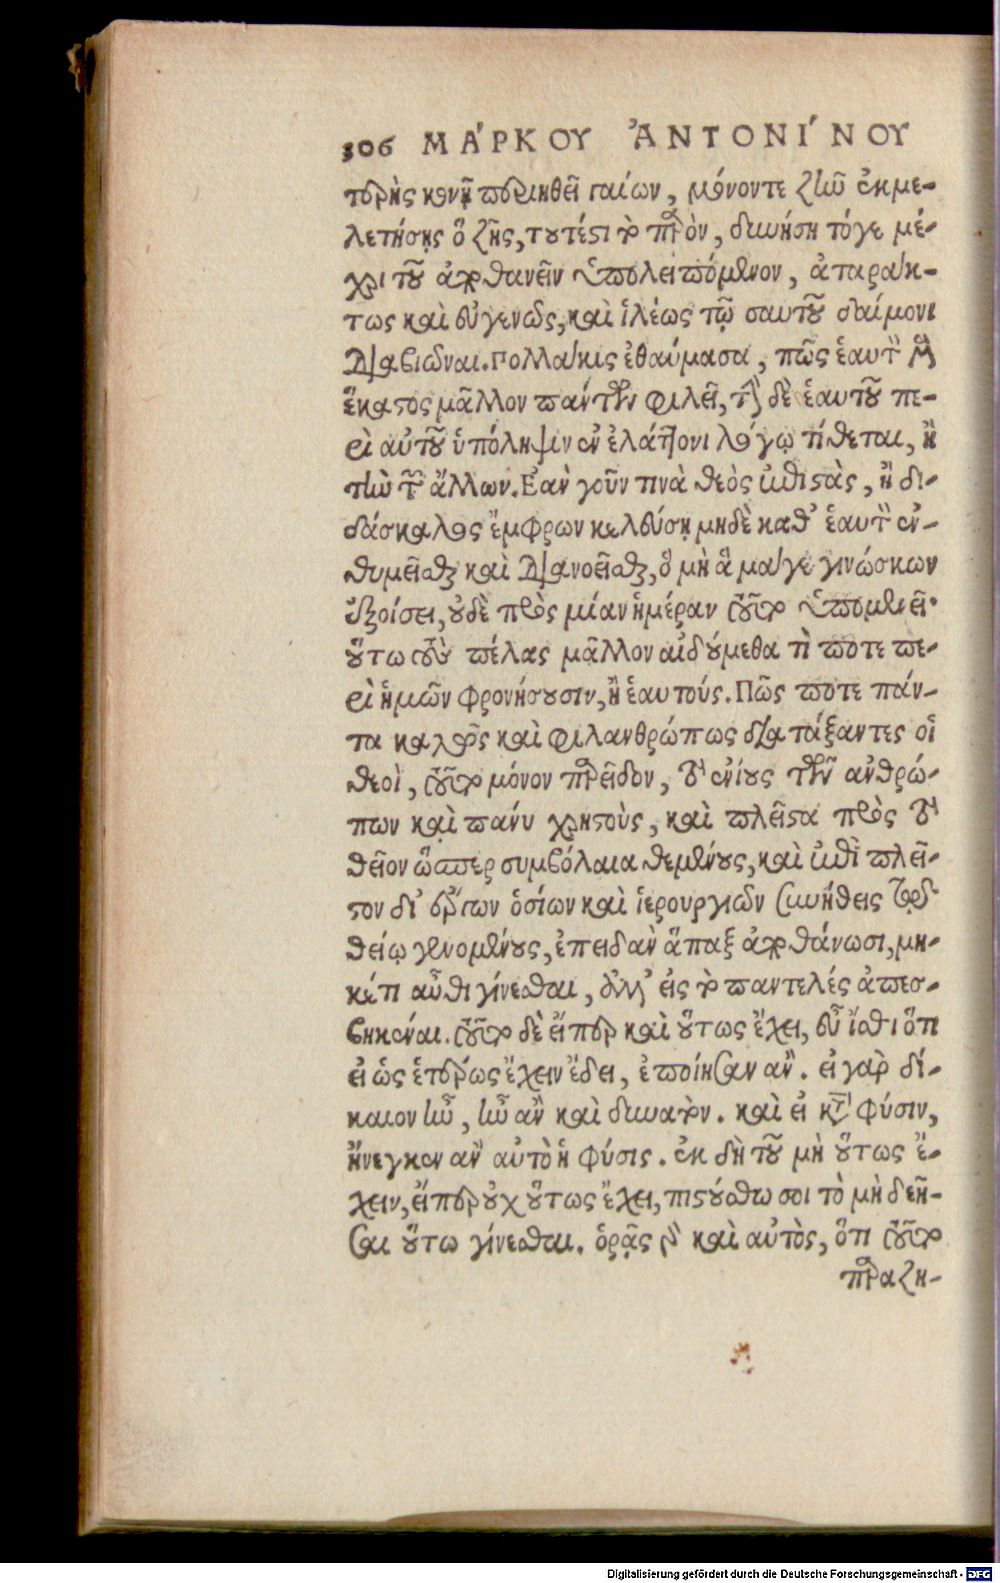 306 ΜΑ΄ΡΚΟΥ ἈΝΤΟΝΙ΄ΝΟΥ
τερὴς κονῇ περιηθεῖ γαίων, μόνον τε ζῆν ἐκμε-
λετήσῃς ὃ ζῇς, τουτέστι τὸ παρὸν, δυνήσῃ τόγε μέ-
χρι τοῦ ἀποθανεῖν ὑπολειπόμενον, ἀταράκ-
τως καὶ εὐγενῶς, καὶ ἱλέως τῷ σαυτοῦ δαίμονι
διαβιῶναι. Πολλάκις ἐθαύμασα, πῶς ἑαυτὸν μὲν
ἕκαστος μᾶλλον πάντων φιλεῖ, τὴν δὲ ἑαυτοῦ πε-
ρὶ αὐτοῦ ὑπόληψιν ἐν ἐλάττονι λόγῳ τίθεται, ἢ
τὴν τῶν ἄλλων. Ἐὰν γοῦν τινὰ θεὸς ἐπιστὰς, ἢ δι-
δάσκαλος ἔμφρων κελεύσῃ μηδὲ καθ᾽ ἑαυτὸν ἐν-
θυμεῖσθαι καὶ διανοεῖσθαι, ὃ μὴ ἅμα γε γινώσκων
ἐξοίσει, οὐδὲ πρὸς μίαν ἡμέραν τοῦτο ὑπομενεῖ·
οὕτω τοὺς πέλας μᾶλλον αἰδούμεθα τὶ ποτε πε-
ρὶ ἡμῶν φρονήσουσιν, ἢ ἑαυτούς. Πῶς ποτε πάν-
τα καλῶς καὶ φιλανθρώπως διατάξαντες οἱ
θεοὶ, τοῦτο μόνον παρεῖδον, τὸ ἐνίους τῶν ἀνθρώ-
πων καὶ πάνυ χρηστοὺς, καὶ πλεῖστα πρὸς τὸ
θεῖον ὥσπερ συμβόλαια θεμένους, καὶ ἐπὶ πλεῖ-
στον δι᾽ ἔργων ὁσίων καὶ ἱερουργιῶν συνήθεις τῷ
θείῳ γενομένους, ἐπειδὰν ἅπαξ ἀποθάνωσι, μη-
κέτι αὖθι γίνεσθαι, ἀλλ᾽ εἰς τὸ παντελές ἀπεσ-
βηκέναι. τοῦτο δὲ εἴπερ καὶ οὕτως ἔχει, εὖ ἴσθι ὅτι
εἰ ὡς ἑτέρως ἔχειν ἔδει, ἐποίησαν ἄν. εἰ γὰρ δί-
καιον ἦν, ἦν ἂν καὶ δυνατόν. καὶ εἰ κατὰ φύσιν,
ἤνεγκεν ἂν αὐτὸ ἡ φύσις. ἐκ δὴ τοῦ μὴ οὕτως ἔ-
χειν, εἴπερ οὐχ οὕτως ἔχει, πιστούσθω σοι τὸ μὴ δεῆ-
σαι οὕτω γίνεσθαι. ὁρᾷς γὰρ καὶ αὐτὸς, ὅτι τοῦτο
παραζη-
Digitalisierung gefördert durch die Deutsche Forschungsgemeinschaft - DFG